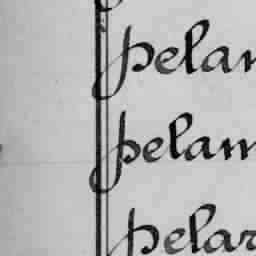 pelan
pelam
pelar